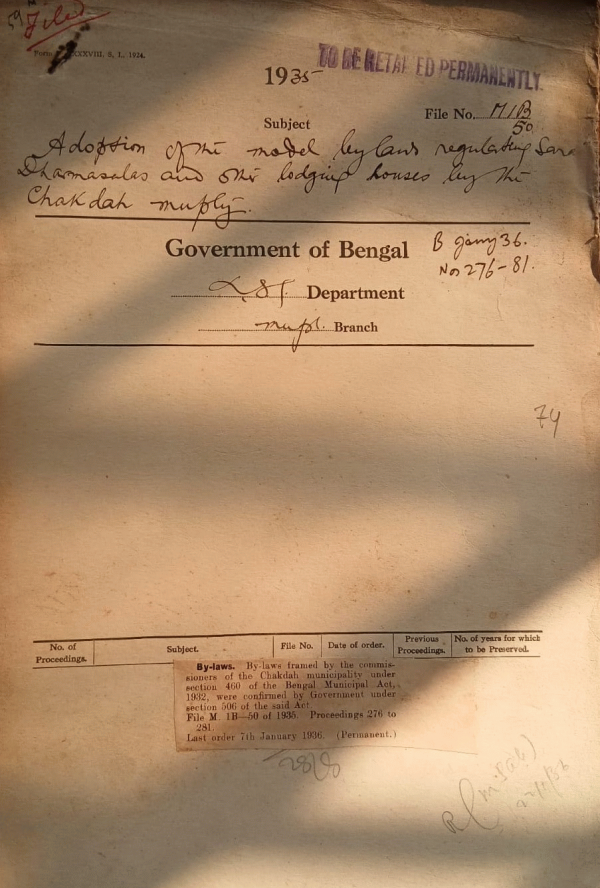 Filed
XXXVIII, S, 1, 1934.
TO BE RETAINED PERMANENTLY.
1935
File No. M1B
50
Subject
Adoption of the model bylaws regulating Sarai
Dharmasalas and other lodging houses by the
Chakdah muply.
Government of Bengal
B Jany 36.
Nos 276-81.
LSG. Department
mupl. Branch
74
No. of Proceedings. Subject. File No. Date of order. Previous Proceedings. No. of years for which to be Preserved.
By-laws. By-laws framed by the commis-
sioners of the Chakdah municipality under
section 460 of the Bengal Municipal Act,
1932, were confirmed by Government under
section 506 of the said Act.
File M. 1B—50 of 1935. Proceedings 276 to
281.
Last order 7th January 1936. (Permanent.)